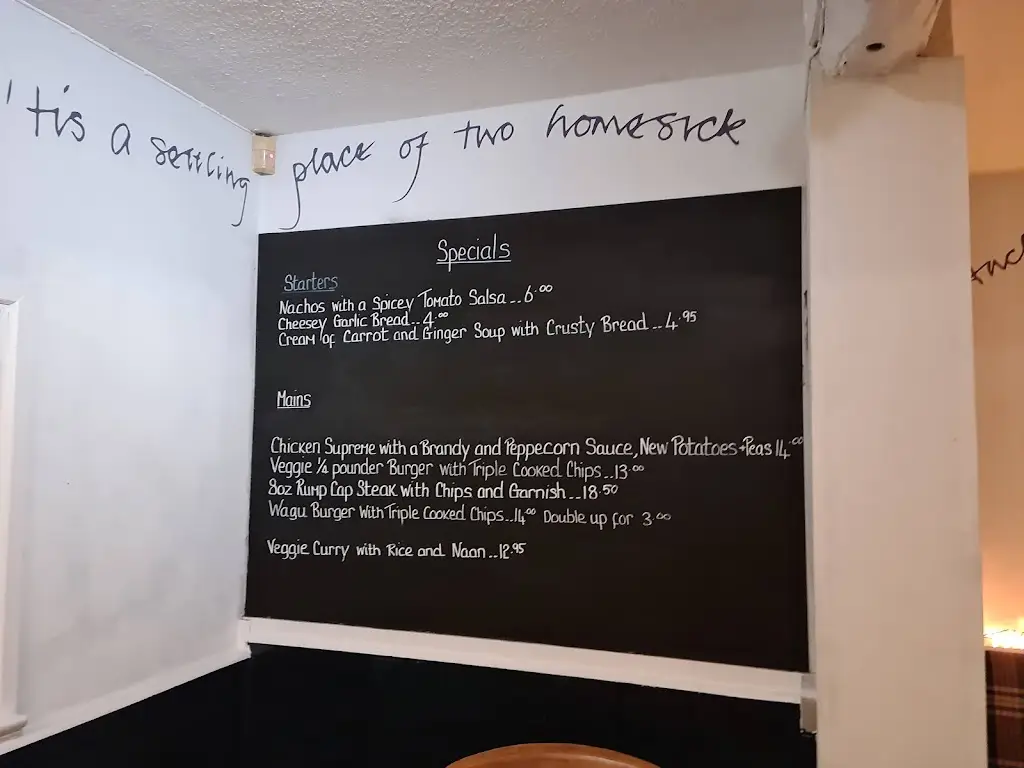 'tis a settling place of two homesick
Specials
Starters
Nachos with a Spicey Tomato Salsa...6.00
Cheesey Garlic Bread...4.00
Cream of Carrot and Ginger Soup with Crusty Bread...4.95
Mains
Chicken Supreme with a Brandy and Peppecorn Sauce, New Potatoes + Peas 14.00
Veggie 1/4 pounder Burger with Triple Cooked Chips...13.00
8oz Rump Cap Steak with Chips and Garnish...18.50
Wagu Burger with Triple Cooked Chips...14.00 Double up for 3.00
Veggie Curry with Rice and Naan...12.95